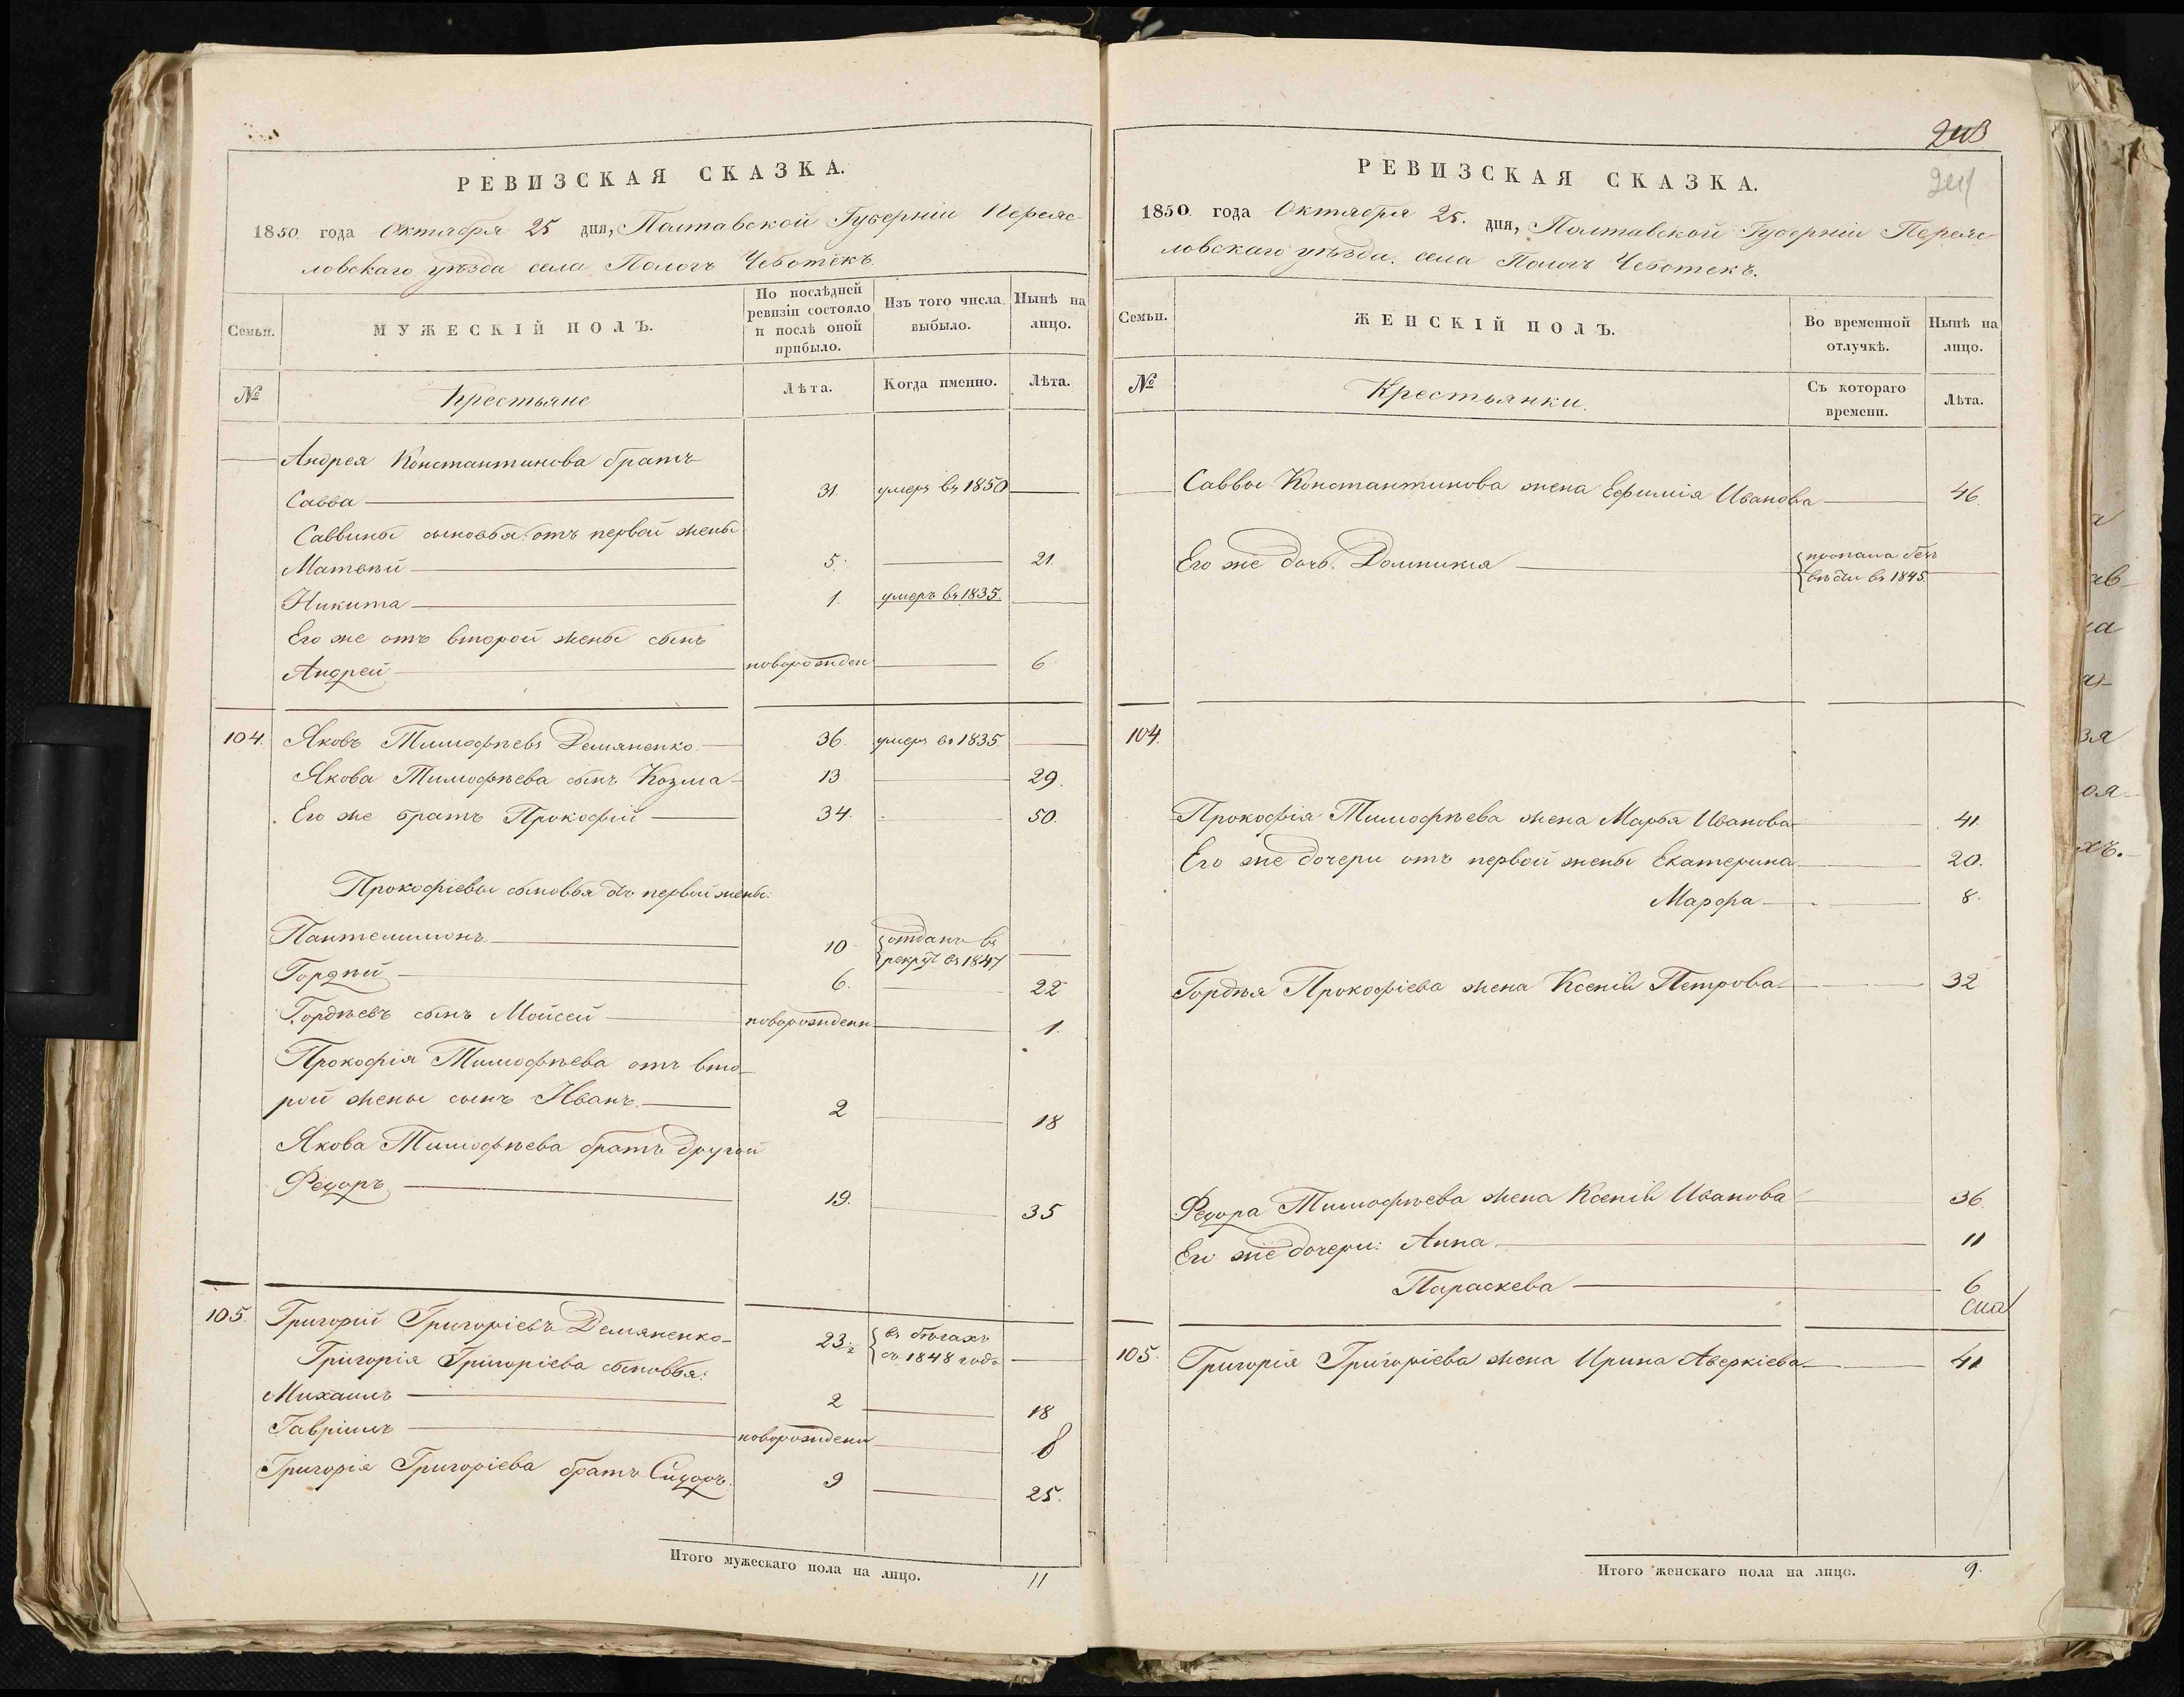 РЕВИЗСКАЯ СКАЗКА.
1850 года Октября 25 дня, Полтавской Губерніи Переяс-
ловскаго уѣзда села Пологъ Чеботекъ.
Семьи. МУЖЕСКІЙ ПОЛЪ. По послѣдней ревизіи состояло и послѣ оной прибыло. Изъ того числа выбыло. Нынѣ на лицо.
№ Крестьяне Лѣта. Когда именно. Лѣта.
Андрея Константинова братъ
Савва 31. умеръ въ 1850
Саввины сыновья: отъ первой жены
Матвѣй 5. 21.
Никита 1. умеръ въ 1835.
Его же отъ второй жены сынъ
Андрей новорожден 6
104. Яковъ Тимофѣевъ Демяненко. 36. умеръ въ 1835
Якова Тимофѣева сынъ Козма 13 29.
Его же братъ Прокофій 34. 50.
Прокофіевы сыновья отъ первой жены:
Пантелимонъ 10 отданъ въ
рекрут въ 1847
Гордѣй 6. 22
Гордѣевъ сынъ Мойсей новорожденн 1.
Прокофія Тимофѣева отъ вто-
рой жены сынъ Иванъ. 2 18
Якова Тимофѣева братъ другой
Федоръ 19. 35
105. Григорій Григоріевъ Демяненко 23½ въ бѣгахъ
съ 1848 года
Григорія Григоріева сыновья:
Михаилъ 2 18
Гавріилъ новорожденн 8
Григорія Григоріева братъ Сидоръ. 9 25.
Итого мужескаго пола на лицо. 11
243
241
РЕВИЗСКАЯ СКАЗКА.
1850. года Октября 25. дня, Полтавской Губерніи Переяс
ловскаго уѣзда. села Пологъ Чеботекъ.
Семьи. ЖЕНСКІЙ ПОЛЪ. Во временной отлучкѣ. Нынѣ на лицо.
№ Крестьянки. Съ котораго времени. Лѣта.
Саввы Константинова жена Ефимія Иванова 46.
Его же дочь. Домникія пропала безъ
вѣсти въ 1845.
104.
Прокофія Тимофѣева жена Марья Иванова 41.
Его же дочери отъ первой жены Екатерина 20.
Марфа 8.
Гордѣя Прокофіева жена Ксенія Петрова 32
Федора Тимофѣева жена Ксенія Иванова 36.
Его же дочери: Анна 11
Параскева 6
105. Григорія Григоріева жена Ирина Аверкіева 41
Итого женскаго пола на лицо. 9.